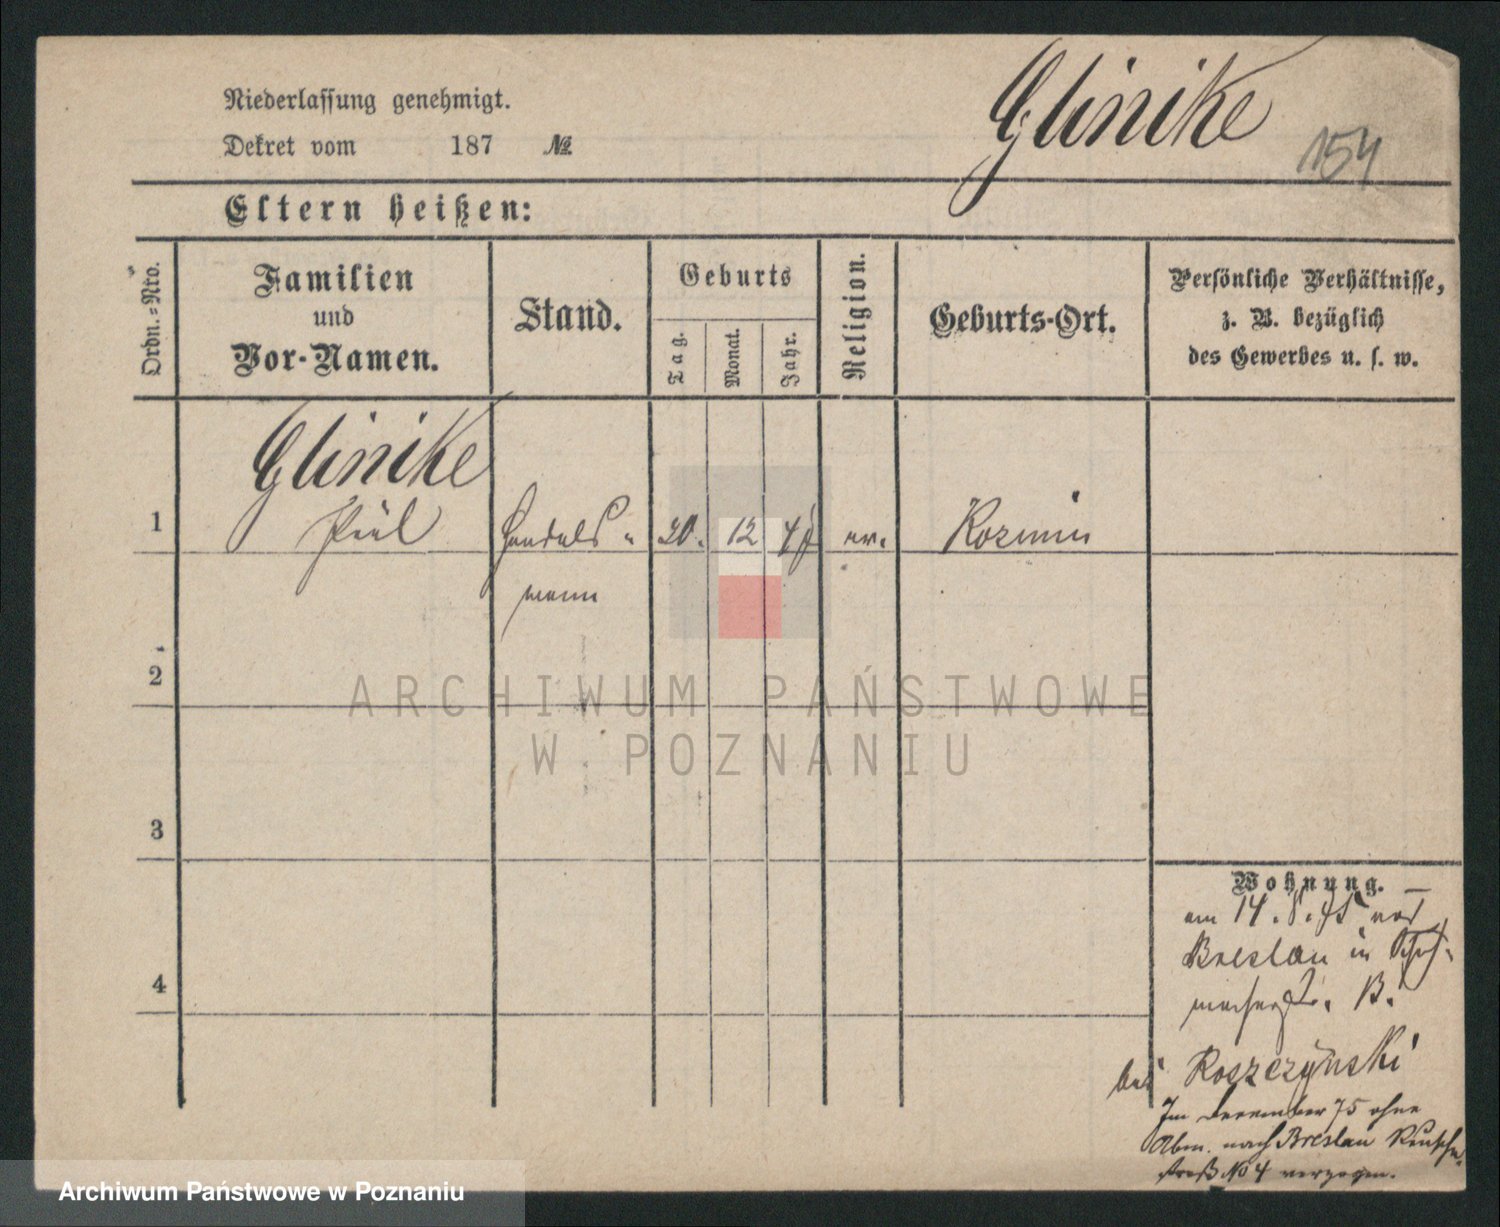 Glinike
154
Niederlassung genehmigt.
Dekret vom 187 №
Eltern heißen:
Ordn.-Nro.
Familien
und
Vor-Namen.
Stand.
Geburts
Tag.
Monat.
Jahr.
Religion.
Geburts-Ort.
Persönliche Verhältnisse,
z. B. bezüglich
des Gewerbes u. s. w.
1
Glinike
Handels-
mann
20.
12
ev.
Kozmin
2
3
4
Wohnung.
am 14.8.75 von
Breslau in
B.
bei Roszczynski
Im December 75 ohne
Abm. nach Breslau
straß No 4 verzogen.
ARCHIWUM PAŃSTWOWE
W POZNANIU
Archiwum Państwowe w Poznaniu